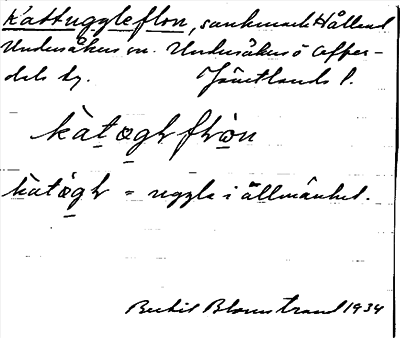 Kattuggleflon, sankmark Hålland
Undersåkers sn. Undersåkers o Offer-
dals tg. Jämtlands l.
kàtǫgl flon
kàtogl = uggla i allmänhet.
Bertil Blomstrand 1934